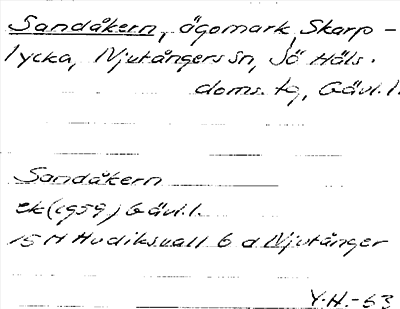 Sandåkern, ägomark, Skarp-
lycka, Njutångers sn, Sö Häls.
doms. tg, Gävl. l.
Sandåkern
ek (1959) Gävl. l.
15 H Hudiksvall 6 d Njutånger
Y.H.-63